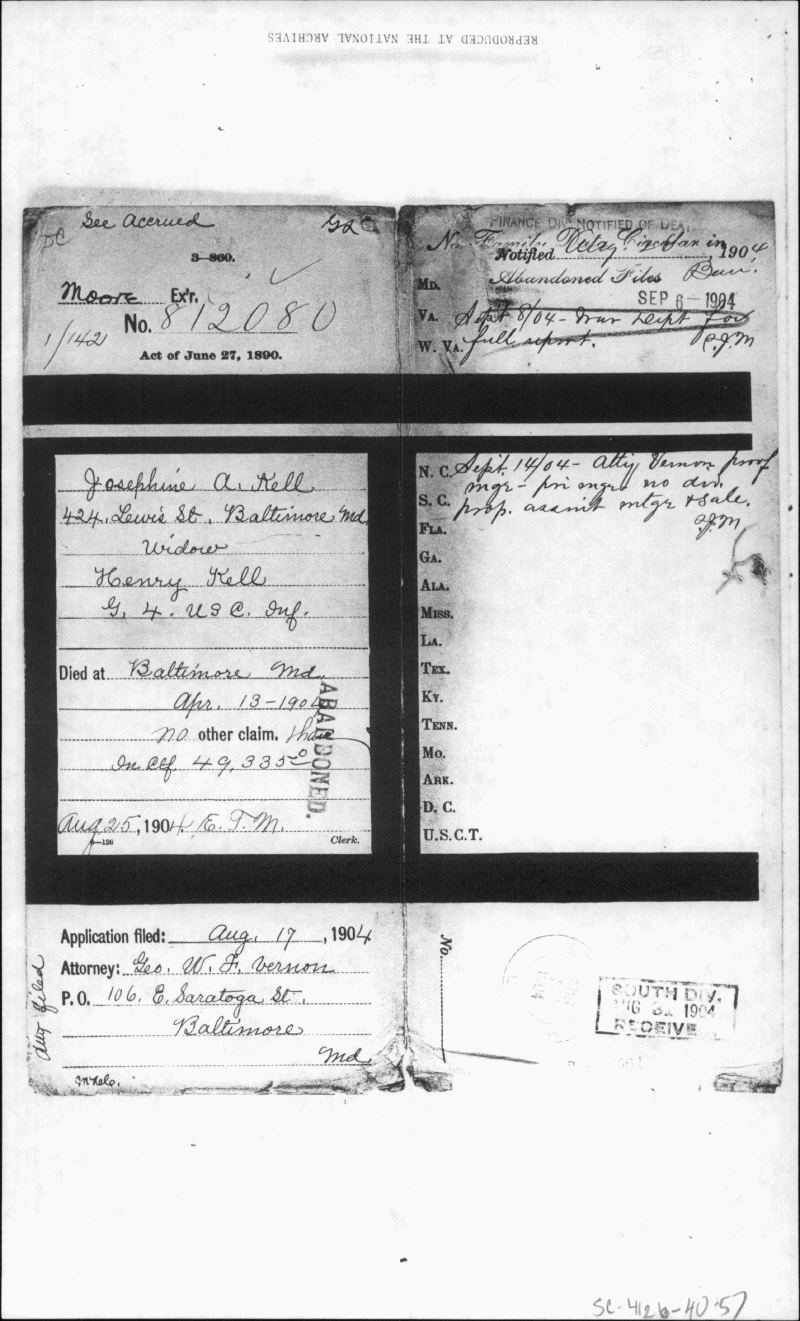 REPRODUCED AT THE NATIONAL ARCHIVES
See Accrued
3-860.
Moore Ex'r.
No. 812080
1/142
Act of June 27, 1890.
Josephine A. Kell
424. Lewis St. Baltimore Md.
Widow
Henry Kell
G. 4. U S C. Inf.
Died at Baltimore Md.
Apr. 13-1904
no other claim. than
In Clf 49,335
ABANDONED.
Aug 25, 1904 E. T. M.
Clerk.
Application filed: Aug. 17, 1904
Attorney: Geo. W. F. Vernon
P.O. 106. E. Saratoga St.,
Baltimore
Md.
Atty filed
FINANCE DIV. NOTIFIED OF
No Family Circular in
Notified, 1904
Abandoned Files
MD.
SEP 6-1904
VA. Sept 8/04 - War Dept for
W. VA. full report.
N. C. Sept. 14/04 - Atty Vernon proof
mgr - pri mgr no div.
S. C. prop. assmt mtgs & sale.
FLA.
GA.
ALA.
MISS.
LA.
TEX.
KY.
TENN.
MO.
ARK.
D. C.
U.S.C.T.
No.
SOUTH DIV.
AUG 31 1904
RECEIVE
SC-4126-40-57